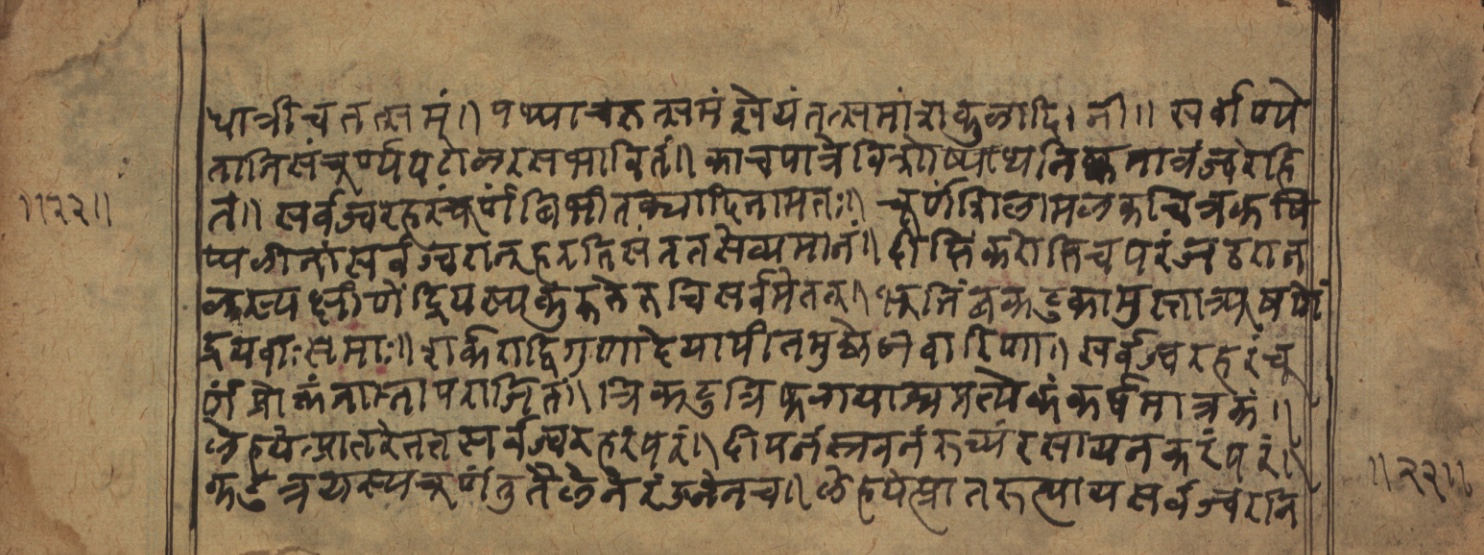 धात्री च तत्समं॥ पथ्या च तत्समं ज्ञेयं तत्समां शकुलादि। नी॥ सर्वाण्ये
तानि संचूर्ण्य पटोलरसभावितं॥ काचपात्रे
॥२२॥
तं॥ सर्वज्वरहरं चूर्णं बिभीतक्यादिनामतः॥ चूर्णं शिवामलकचित्रकपि
प्पलीनां सर्वज्वरान् हरति संततसेव्यमानं॥ दीप्तिं करोति च परं जठरान
लस्य क्षीणेंद्रियस्य कुरुते रुचि सर्वमेतत्॥ भूनिंबकटुकामुस्तात्र्यूषणें
द्रयवाः समाः॥ शर्कराद्विगुणा देया पीतमुष्णेन वारिणा॥ सर्वज्वरहरं चू
र्णं प्रोक्तं नाम्नापराजितं॥ त्रिकटु त्रिफला प्रत्येकं कर्षमात्रकं॥
लेहयेत्प्रातरेतत्तु सर्वज्वरहरं परं॥ दीपनं रुच्यं रसायनकरं परं॥
चूर्णं तु तैलेन च॥ लेहयेत्प्रातरुत्थाय सर्वज्वरानि
॥२२॥